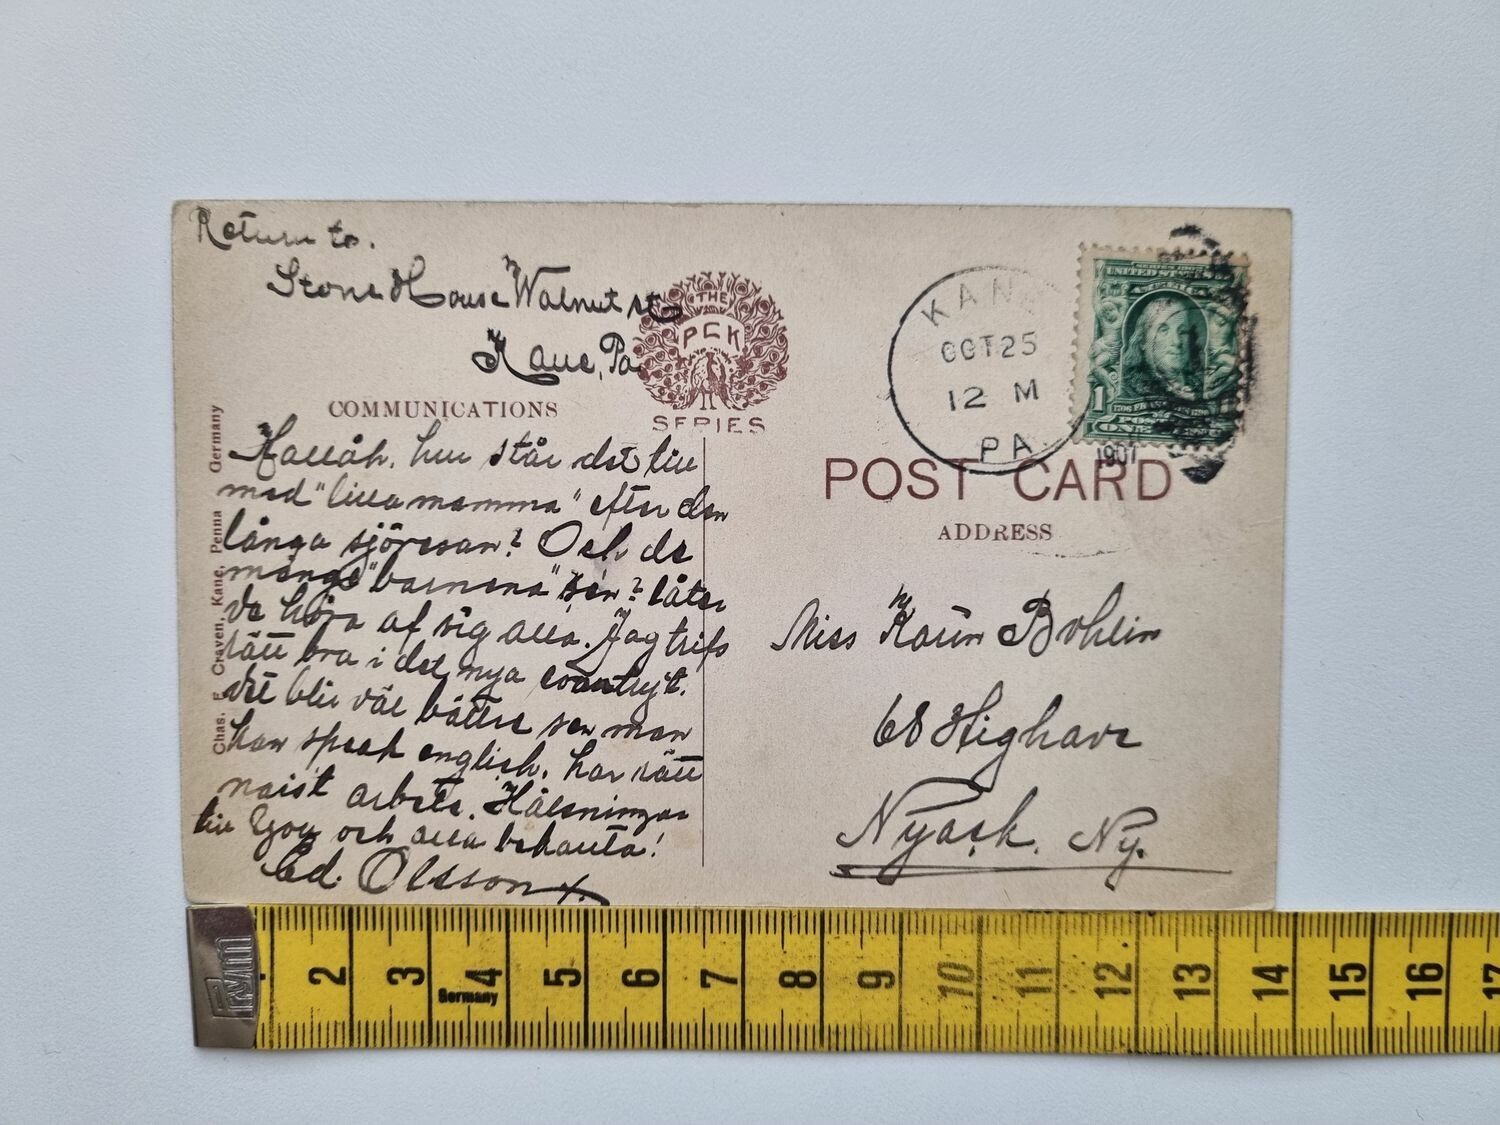 Return to.
Stone House Walnut st
Kane, Pa
THE
PCK
SERIES
COMMUNICATIONS
Hallåh, hur står det till
med "lilla mamma" efter den
långa sjöresan? Och de
många "barnena" sen? låter
de höra af sig alla. Jag trifs
rätt bra i det nya countryt.
det blir väl bättre sen man
kan speak english. har rätt
naist arbete. Hälsningar
till You och alla bekanta!
Ed. Olsson
Chas. E. Craven, Kane, Penna Germany
KANE
OCT 25
12 M
PA.
1907
SERIES 1902
UNITED STATES
1
1706 FRANKLIN 1790
POSTAGE
ONE CENT
POST CARD
ADDRESS
Miss Karin Bohlin
68 Highave
Nyack, Ny.
Prym
2 3 4 5 6 7 8 9 10 11 12 13 14 15 16 17
Germany